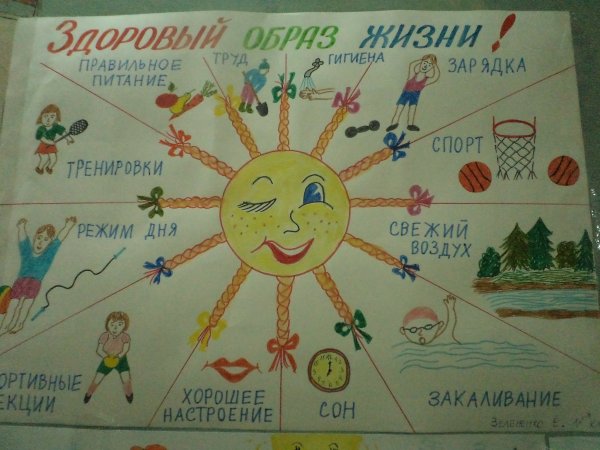 ЗДОРОВЫЙ ОБРАЗ ЖИЗНИ!
ПРАВИЛЬНОЕ
ПИТАНИЕ
ТРУД
ГИГИЕНА
ЗАРЯДКА
ТРЕНИРОВКИ
СПОРТ
РЕЖИМ ДНЯ
СВЕЖИЙ
ВОЗДУХ
ОРТИВНЫЕ
ЕКЦИИ
ХОРОШЕЕ
НАСТРОЕНИЕ
СОН
ЗАКАЛИВАНИЕ